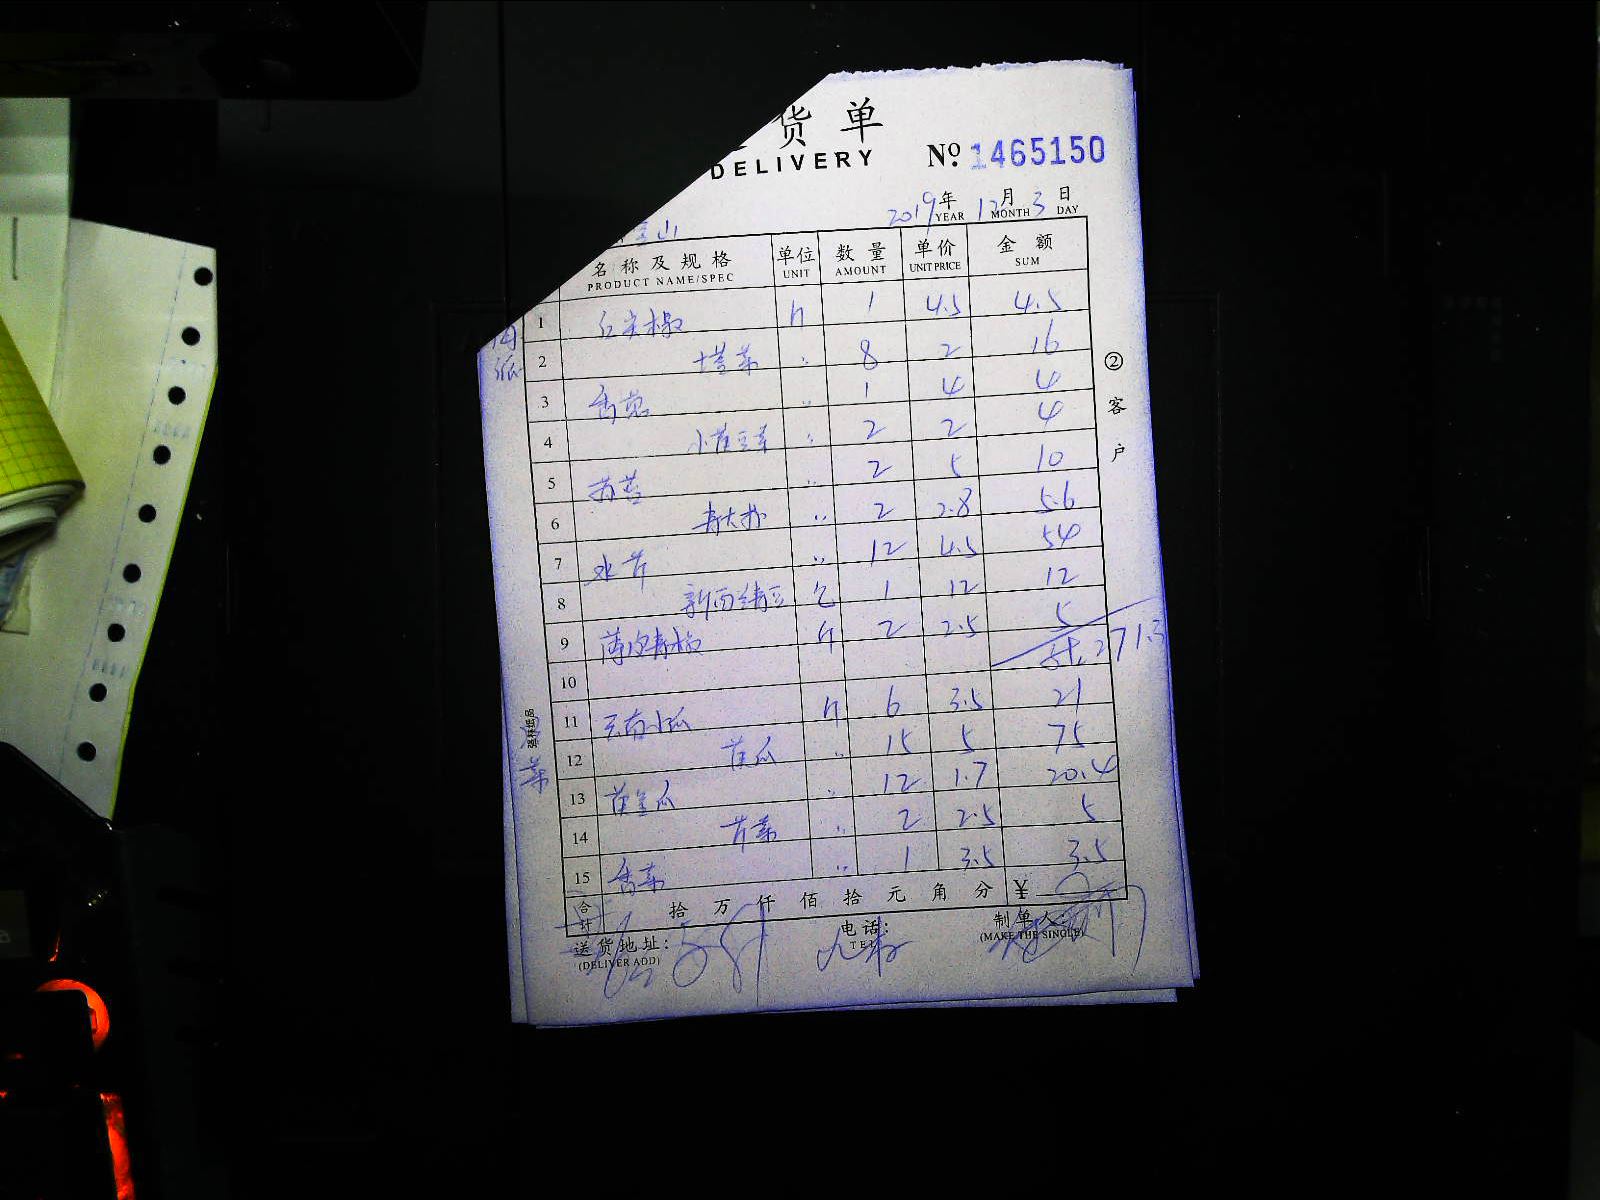 货单
DELIVERY No. 1465150
2019年 YEAR 12月 MONTH 3日 DAY
名称及规格 PRODUCT NAME/SPEC 单位 UNIT 数量 AMOUNT 单价 UNIT PRICE 金额 SUM
1 红尖椒 斤 1 4.5 4.5
2 塔菜 〃 8 2 16
3 香葱 〃 1 4 4
4 小黄豆芽 〃 2 2 4
5 〃 2 5 10
6 青大椒 〃 2 2.8 5.6
7 水芹 〃 12 4.5 54
8 新西红豆 包 1 12 12
9 薄皮青椒 斤 2 2.5 5
10 计271.5
11 云南小瓜 斤 6 3.5 21
12 黄瓜 〃 15 5 75
13 黄金瓜 〃 12 1.7 20.4
14 芹菜 〃 2 2.5 5
15 香菜 〃 1 3.5 3.5
合计 拾 万 仟 佰 拾 元 角 分 ¥
送货地址: (DELIVER ADD) 电话: TEL 制单人: (MAKE THE SINGLE)
② 客户
强林纸品